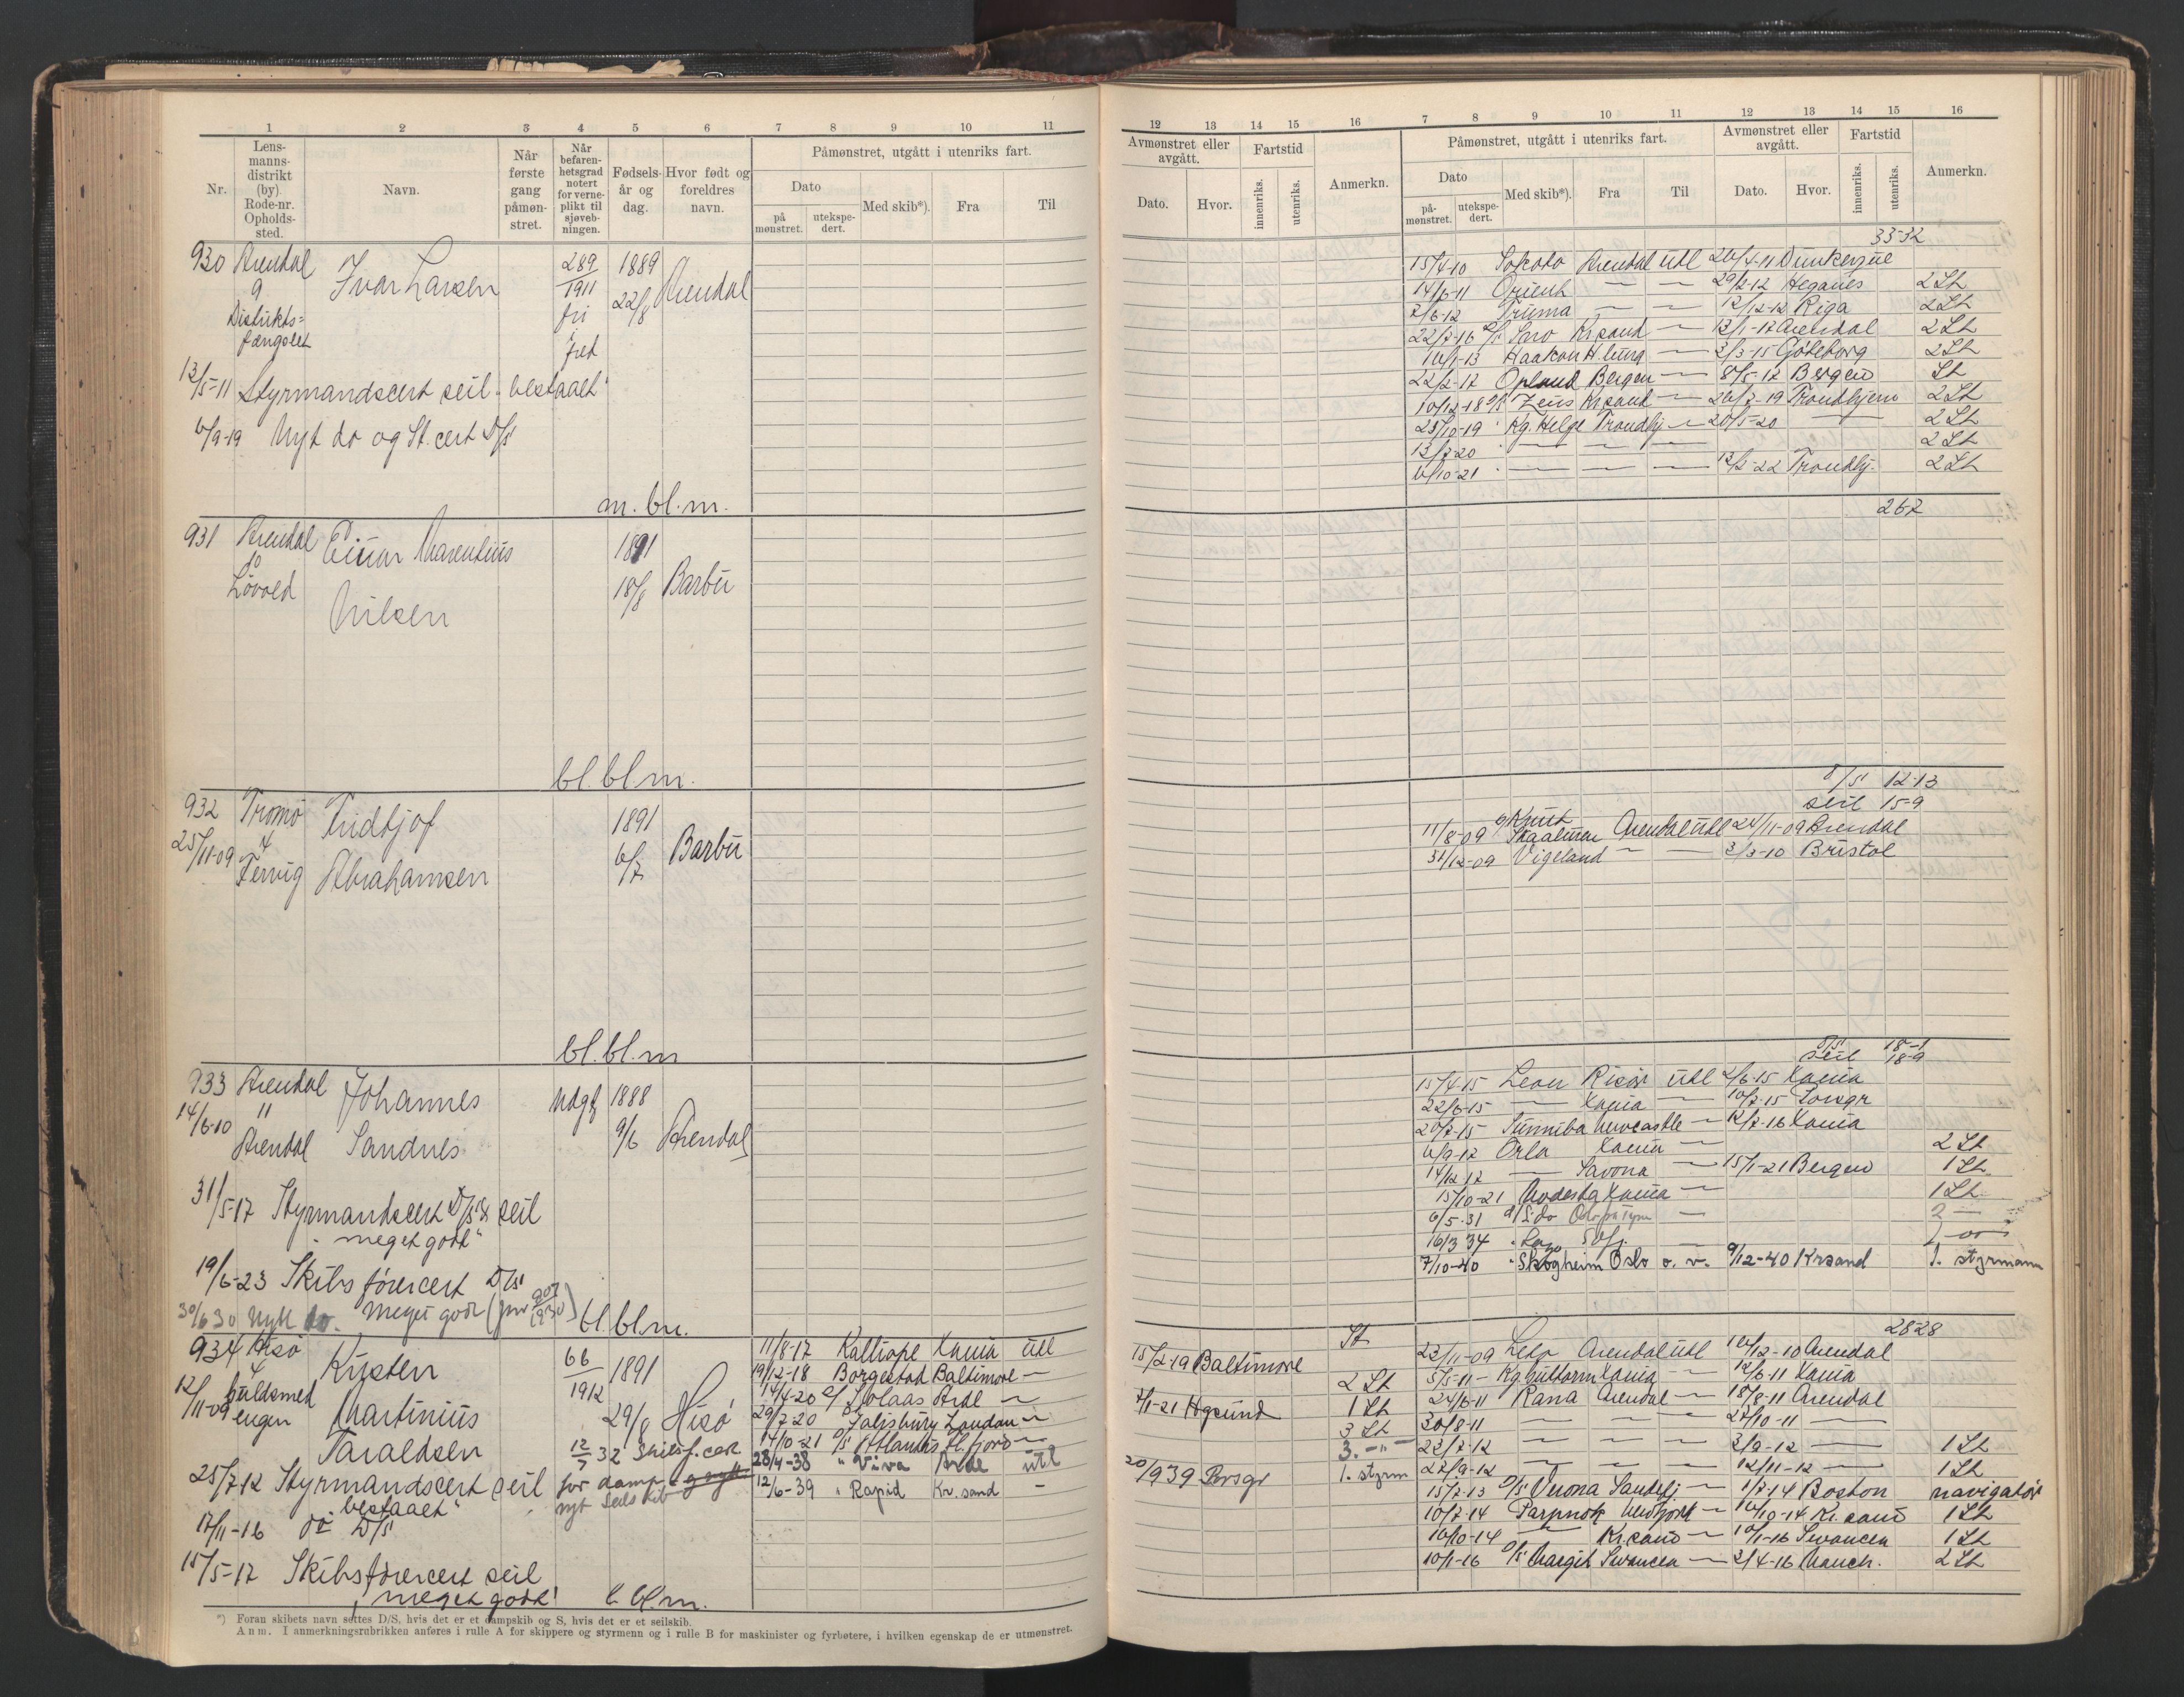 1 2 3 4 5 6 7 8 9 10 11
Nr.
Lens-
manns-
distrikt
(by).
Rode-nr.
Opholds-
sted.
Navn.
Når
første
gang
påmøn-
stret.
Når
befaren-
hetsgrad
notert
for verne-
plikt til
sjøveb-
ningen.
Fødsels-
år og
dag.
Hvor født og
foreldres
navn.
Påmønstret, utgått i utenriks fart.
Dato
på
mønstret.
utekspe-
dert.
Med skib*).
Fra
Til
930 Arendal Ivar Larsen 289/1911 1889 Arendal
9 fri 22/8
Distrikts=
fængslet
fret
13/5-11 Styrmandscert seil. bestaaet
6/9-19 Nyt do og St. cert D/S
m. bl. m.
931 Arendal Einar Marentius 1891
10
Løvold Nilsen 18/8 Barbu
bl. bl. m.
932 Tromø Fridtjof 1891
25/11-09 4 6/7 Barbu
Færvig Abrahamsen
bl. bl. m
933 Arendal Johannes udgf 1888
14/6-10 11
Arendal Sandnes 9/6 Arendal
31/5-17 Styrmandscert D/S & seil
"meget godt"
19/6-23 Skibsførercert D/S
30/6 30 Nytt do. Meget godt
bl. bl. m.
934 Hisø Kristen 66/1912 1891
4
12/11-09 Guldsmed
engen Martinius 29/8 Hisø
Taraldsen 12/7 32 Skibsf. cert
25/7-12 Styrmandscert seil for damp
"bestaaet" nyt Seilskib
17/11-16 do D/S
15/5-17 Skibsførercert seil
"meget godt" b. bl. m.
11/8-17 Kalliope Xania utl
19/12-18 Borgestad Baltimore —
14/4-20 Arдl —
29/7-20 Salisbury London —
14/10-21 D/S Atlantis —
28/4-38 " Viva Ardl utl
12/6-39 " Rapid Kr. sand -
*) Foran skibets navn settes D/S, hvis det er et dampskib og S, hvis det er et seilskib.
Anm. I anmerkningsrubrikken anføres i rulle A for skippere og styrmenn og i rulle B for maskinister og fyrbøtere, i hvilken egenskap de er utmønstret.
12 13 14 15 16 7 8 9 10 11 12 13 14 15 16
Avmønstret eller
avgått.
Fartstid
Dato.
Hvor.
innenriks.
utenriks.
Anmerkn.
Påmønstret, utgått i utenriks fart.
Dato
på-
mønstret.
utekspe-
dert.
Med skib*).
Fra
Til
Avmønstret eller
avgått.
Dato.
Hvor.
Fartstid
innenriks.
utenriks.
Anmerkn.
33-32
15/4-10 Sokoto Arendal utl 26/4-11 Dunkerque
14/6-11 Orient — — 29/2-12 Høganes 2 St
7/6-12 Truma — — 12/12-12 Riga 2 St
22/7-16 D/S Saro Kr.sand — 13/1-17 Arendal 2 St
Haakon H. burg — 3/3-15 Göteborg 2 St
22/2-17 Opland Bergen — 8/5-17 Bergen St
10/12-18 D/S Zeus Kr.sand — 26/7-19 Trondhjem 2 St
23/10-19 " Kg. Helge Trondhj — 20/5-20 — 2 St
13/7-20 " — — — 2 St
6/10-21 " — — — 13/2-22 Trondhj. 2 St
26-7
D/S 12-13
seil 15-9
11/8-09 Knut Skaaluren Arendal utl 24/11-09 Arendal
31/12-09 Vigeland — — 3/3-10 Bristol
D/S 18-1
seil 18-9
15/4-15 Leon Risør utl 2/6-15 Xania
22/6-15 — Xania — 10/7-15 Porsgr
20/7-15 Sunniba Newcastle — 12/7-16 Xania
6/9-17 Orla Xania — 2 St
14/12 17 — Savona — 15/1-21 Bergen 1 St
15/10-21 Modesta Xania — 1 St
6/5-31 — 2 —
16/3 34
7/10-40 " Skogheim Oslo o. v. 9/12-40 Krsand 1. styrmann
28-28
15/2-19 Baltimore St 23/11-09 Leto Arendal utl 16/12-10 Arendal
2 St 5/5-11 - Kg. Guttorm Xania — 12/6-11 Xania
7/1-21 Hgsund 1 St 24/6-11 Rana Arendal — 18/8-11 Arendal
3 St 30/8-11 — — — 27/10-11 —
3. —"— 23/2-12 — — — 3/9-12 — 1 St
20/9 39 Porsgr 1. styrm 22/9-12 — — — 12/11-12 — 1 St
15/7-13 D/S Verona Sandefj — 1/7-14 Boston navigatør
10/7-14 — 16/10-14 Kr. sand 1 St
16/10-14 — Kr.sand — 10/1-16 Swansea 1 St
10/1-16 D/S Margit Swansea — 2/4-16 Manch. 2 St